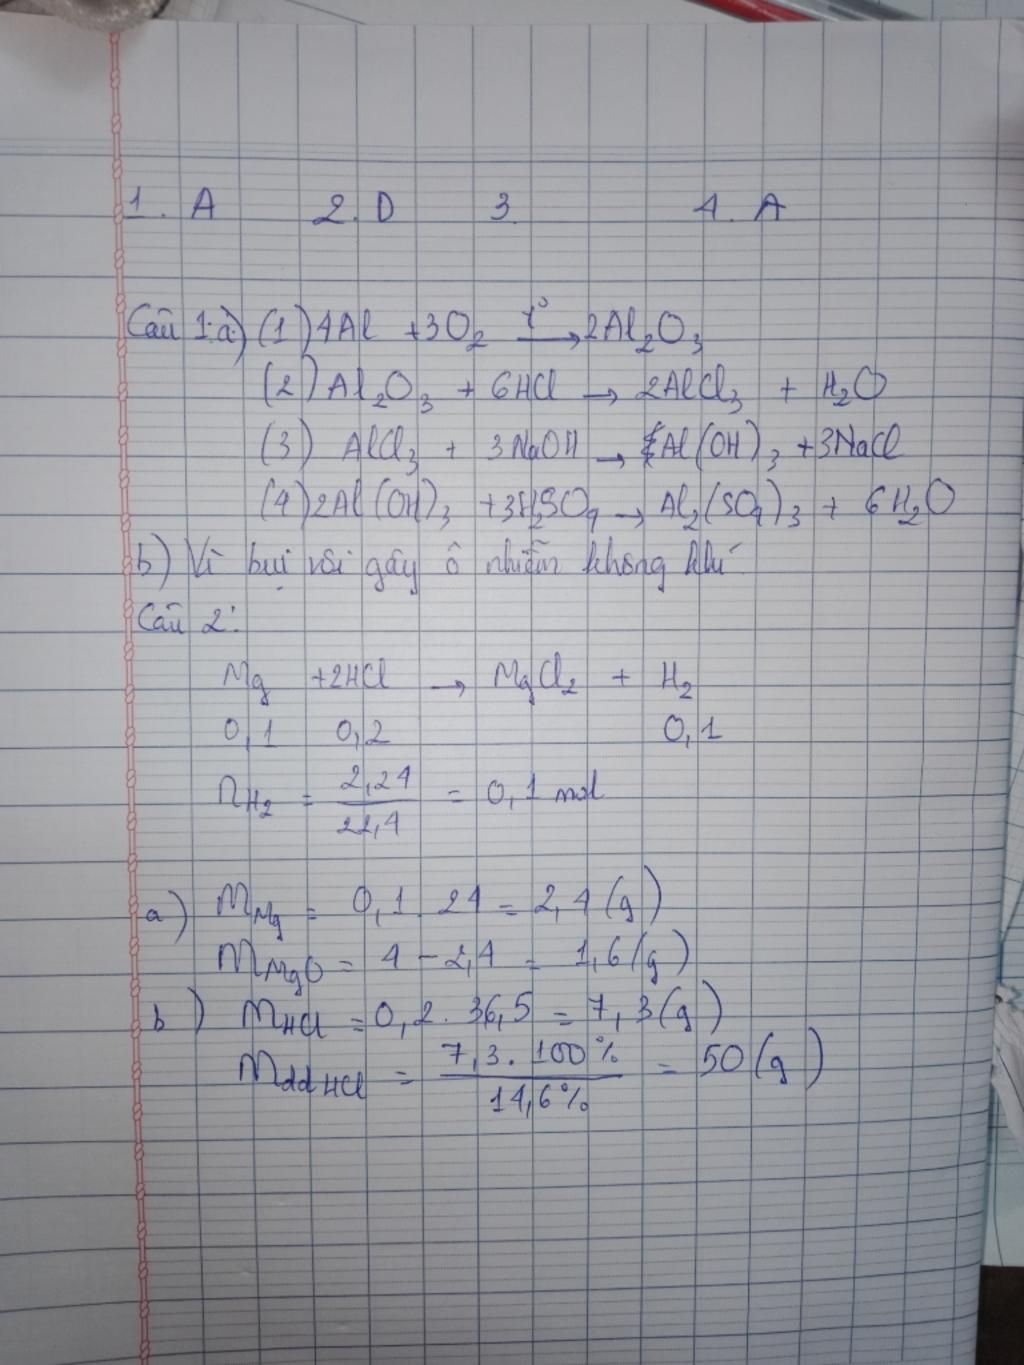 1. A 2. D 3. 4. A
Câu 1: a) (1) 4Al + 3O₂ t° → 2Al₂O₃
(2) Al₂O₃ + 6HCl → 2AlCl₃ + H₂O
(3) AlCl₃ + 3NaOH → Al(OH)₃ + 3NaCl
(4) 2Al(OH)₃ + 3H₂SO₄ → Al₂(SO₄)₃ + 6H₂O
b) Vì bụi vôi gây ô nhiễm không khí
Câu 2:
Mg + 2HCl → MgCl₂ + H₂
0,1 0,2 0,1
nH₂ = 2,24 / 22,4 = 0,1 mol
a) mMg = 0,1 . 24 = 2,4 (g)
mMgO = 4 - 2,4 = 1,6 (g)
b) mHCl = 0,2 . 36,5 = 7,3 (g)
mddHCl = 7,3 . 100% / 14,6% = 50 (g)